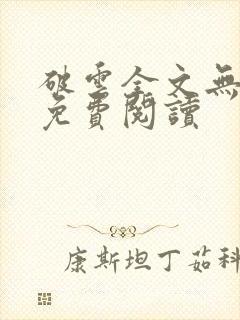 破雲全文無
免費閱讀
康斯坦丁茹科